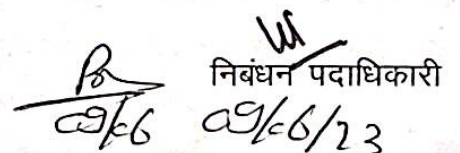 निबंधन पदाधिकारी
09/06 09/06/23